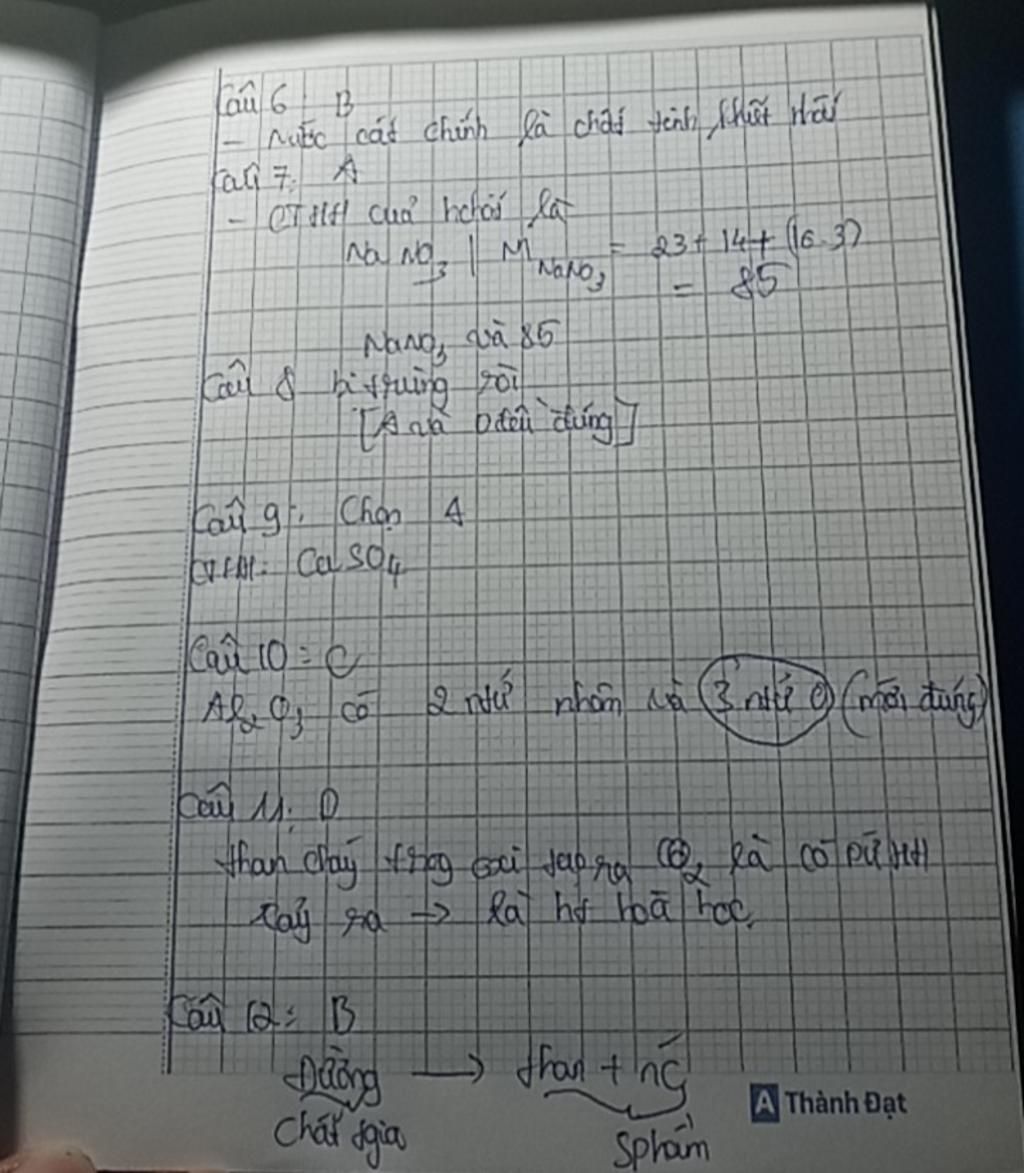 Câu 6: B
- Nước cất chính là chất tinh khiết nhất
Câu 7: A
- CTHH của hchất là
NaNO3 | MNaNO3 = 23 + 14 + (16.3)
= 85
NaNO3 và 85
Câu 8 bị trùng rồi
[A và D đều đúng]
Câu 9: Chọn A
CTHH: CaSO4
Câu 10: C
Al2O3 có 2 ntử nhôm và 3 ntử O (mới đúng)
Câu 11: D
than cháy trog oxi tạo ra CO2 là có PỨHH
xảy ra → là ht hoá học
Câu 12: B
Đường → than + nc
Chất tgia
Sphẩm
A Thành Đạt